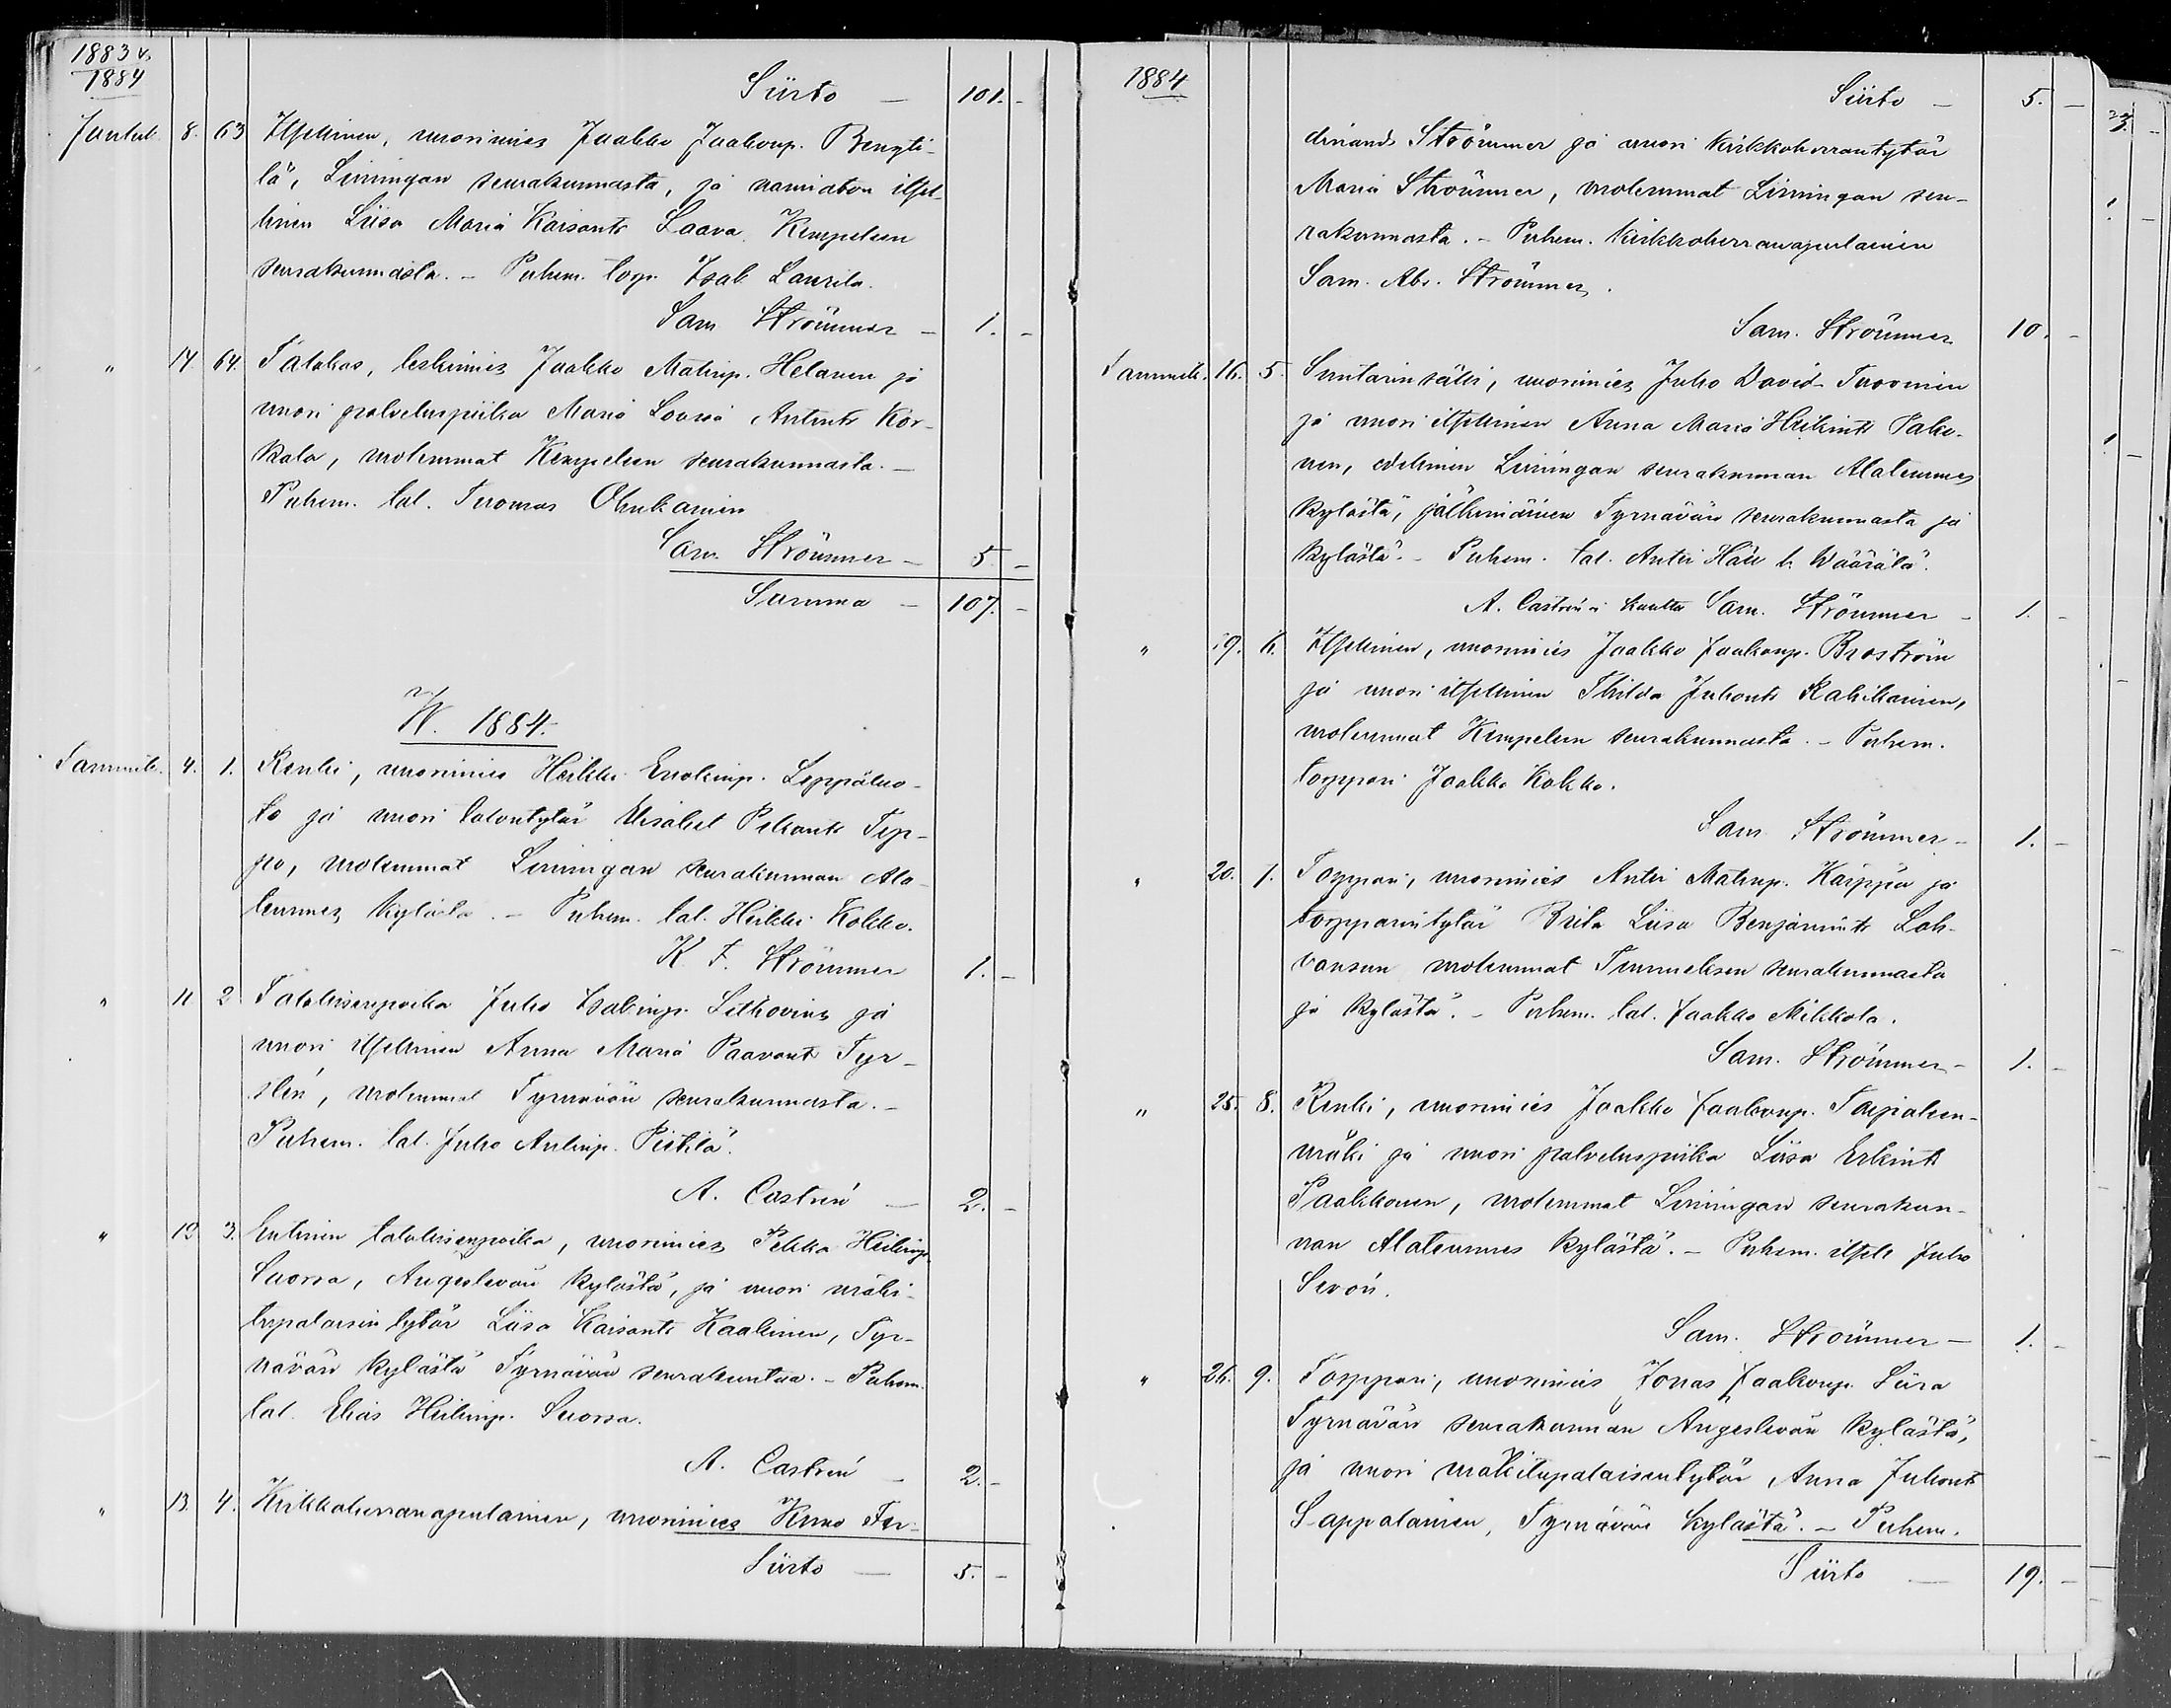 1883 v.
1884
Siirto — 101. -
Jouluk. 8. 63 Itsellinen, nuorimies Jaakko Jaakonp. Bengti-
lä, Limingan seurakunnasta, ja naimaton itsel-
linen Liisa Maria Kaisant. Laava Kempeleen
seurakunnasta. - Puhem. torp. Isak Laurila.
Sam Strömmer - 1. -
" 14. 64. Talokas, leskimies Jaakko Matinp. Helanen ja
nuori palveluspiika Maria Lovisa Antint. Kor-
kala, molemmat Kempeleen seurakunnasta. -
Puhem. tal. Tuomas Ohukainen
Sam. Strömmer - 5. -
Summa - 107. -
W. 1884.
Tammik. 4. 1. Renki, nuorimies Heikki Enokinp. Leppäluo-
to ja nuori talontytär Elisabet Pekant. Tep-
po, molemmat Limingan seurakunnan Ala-
temmes kylästä. - Puhem. tal. Heikki Kokko.
K. F. Strömmer 1. -
" 11 2 Talokkaanpoika Juho Isakinp. Litkovius ja
nuori itsellinen Anna Maria Paavont. Tyr-
slén, molemmat Tyrnävän seurakunnasta. -
Puhem. tal. Juho Antinp. Pistilä.
A. Castrén - 2. -
" 13 3. Entinen talokkaanpoika, nuorimies Pekka Heikinp.
Suorsa, Ängeslevän kylästä, ja nuori mäki-
tupalaisen tytär Liisa Kaisant. Kaakinen, Tyr-
nävän kylästä Tyrnävän seurakuntaa. - Puhem.
tal. Elias Heikinp. Suorsa.
A. Castrén - 2. -
" 13. 4. Kirkkoherranapulainen, nuorimies Kuno Fer-
Siirto — 5. -
1884
Siirto - 5. -
dinand Strömmer ja nuori kirkkoherrantytär
Maria Strömmer, molemmat Limingan seu-
rakunnasta. - Puhem. kirkkoherranapulainen
Sam. Abr. Strömmer.
Sam. Strömmer 10. -
Tammik. 16. 5. Suntarin sälli, nuorimies Juho David Tuominen
ja nuori itsellinen Anna Maria Heikint.
nen, edellinen Limingan seurakunnan Alatemmes
kylästä, jälkimäinen Tyrnävän seurakunnasta ja
kylästä. - Puhem. tal. Antti Häll l. Wäärälä.
A. Castrén'in kautta Sam. Strömmer - 1. -
" 19. 6. Itsellinen, nuorimies Jaakko Jaakonp. Broström
ja nuori itsellinen Thilda Juhont. Kahikainen,
molemmat Kempeleen seurakunnasta. - Puhem.
torppari Jaakko Kokko.
Sam Strömmer - 1. -
" 20. 7. Torppari, nuorimies Antti Matinp. Karppa ja
torpparintytär Brita Liisa Benjamint. Loh-
vansuu molemmat Temmeksen seurakunnasta
ja kylästä. - Puhem. tal. Jaakko Mikkola.
Sam. Strömmer - 1. -
" 25. 8. Renki, nuorimies Jaakko Jaakonp. Taipaleen-
mäki ja nuori palveluspiika Liisa Erkint.
Paakkonen, molemmat Limingan seurakun-
nan Alatemmes kylästä. - Puhem. itsell. Juho
Sevón.
Sam. Strömmer - 1. -
" 26. 9. Torppari, nuorimies Jonas Jaakonp. Siira
Tyrnävän seurakunnan Ängeslevän kylästä,
ja nuori mäkitupalaisentytär Anna Juhont.
Lappalainen, Tyrnävän kylästä. - Puhem.
Siirto — 19. -